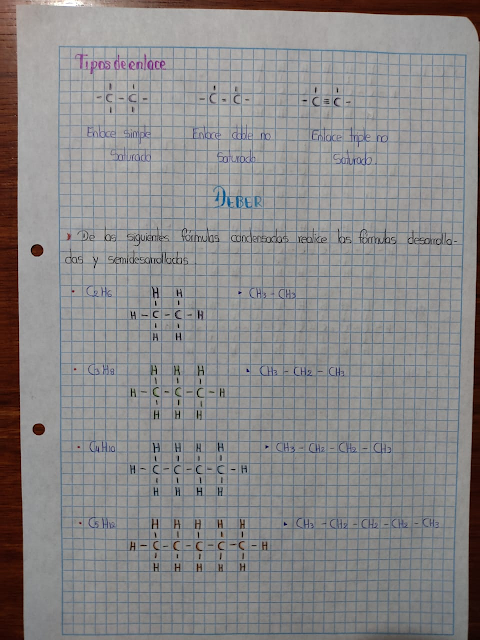 Tipos de enlace
- C - C -
- C = C -
- C ≡ C -
Enlace simple
Saturado
Enlace doble no
Saturado
Enlace triple no
Saturado.
DEBER
De las siguientes fórmulas condensadas realice las fórmulas desarrolla-
das y semidesarrolladas
• C2H6
H H
H - C - C - H
H H
• CH3 - CH3
• C3H8
H H H
H - C - C - C - H
H H H
• CH3 - CH2 - CH3
• C4H10
H H H H
H - C - C - C - C - H
H H H H
• CH3 - CH2 - CH2 - CH3
• C5H12
H H H H H
H - C - C - C - C - C - H
H H H H H
• CH3 - CH2 - CH2 - CH2 - CH3